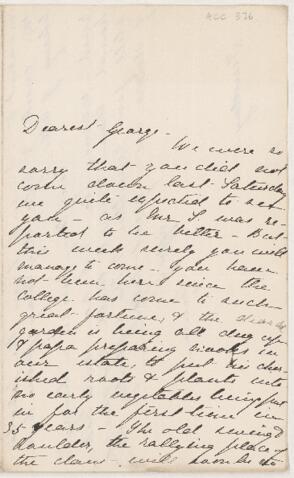 ACC 376
Dearest George.
We were so
sorry that you did not
come down last Saturday
we quite expected to see
you - as Mr S. was re-
ported to be better - But
this week surely you will
manage to come - you have
not been here since the
College has come to such
great fortune, & the
garden is being all dug up
& papa preparing nooks in
our estate, to put his cher
ished roots & plants into
no early vegetables being put
in for the first time in
35 years - The old
boulder, the rallying place of
the clans will